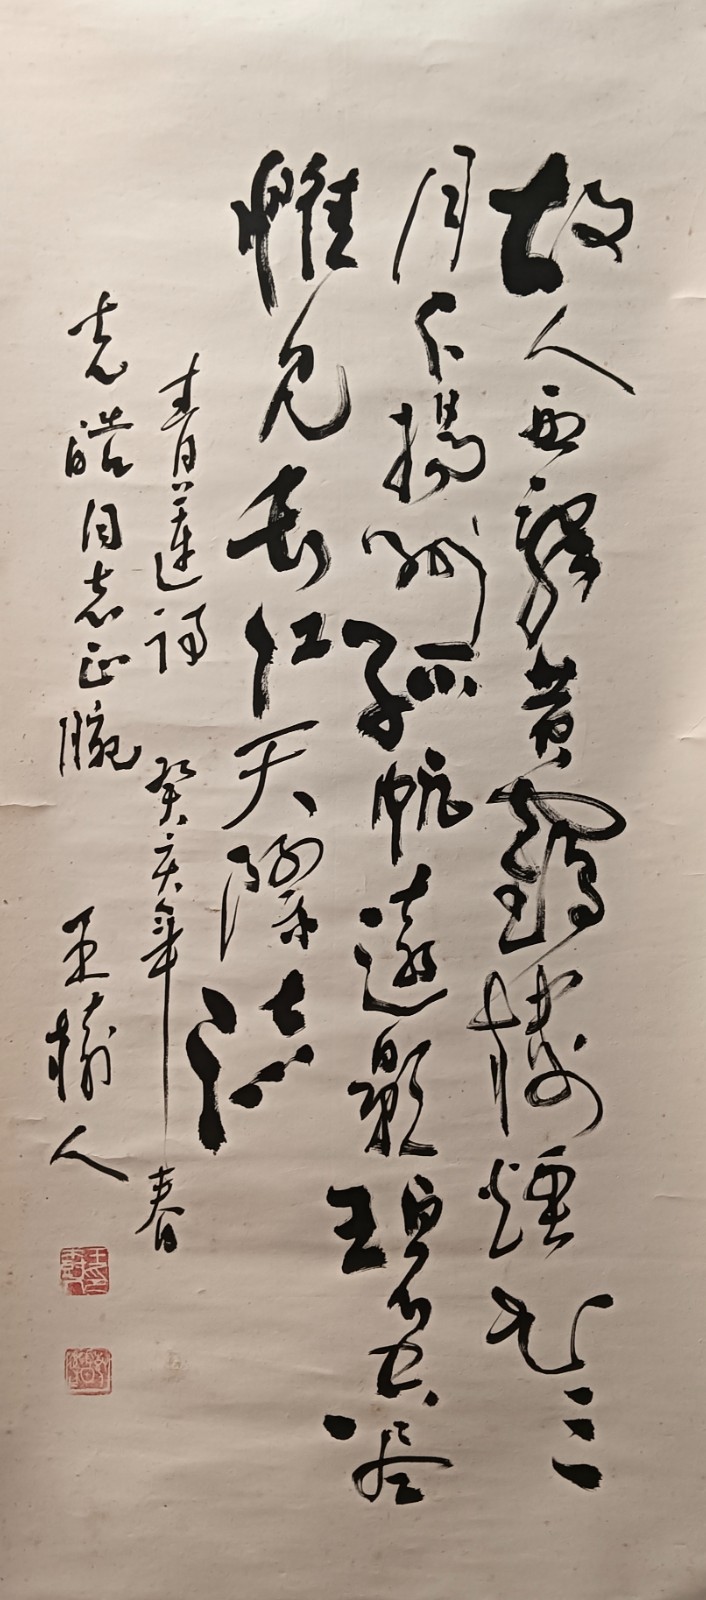 故人西辞黄鹤楼烟花三
月下揚州孤帆遠影碧空盡
惟見長江天際流
青蓮詩 癸亥年春
克皓同志正腕
王樹人